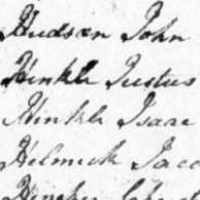 Hudson John
Hinkle Justus
Hinkle Isaac
Helmick Jaco